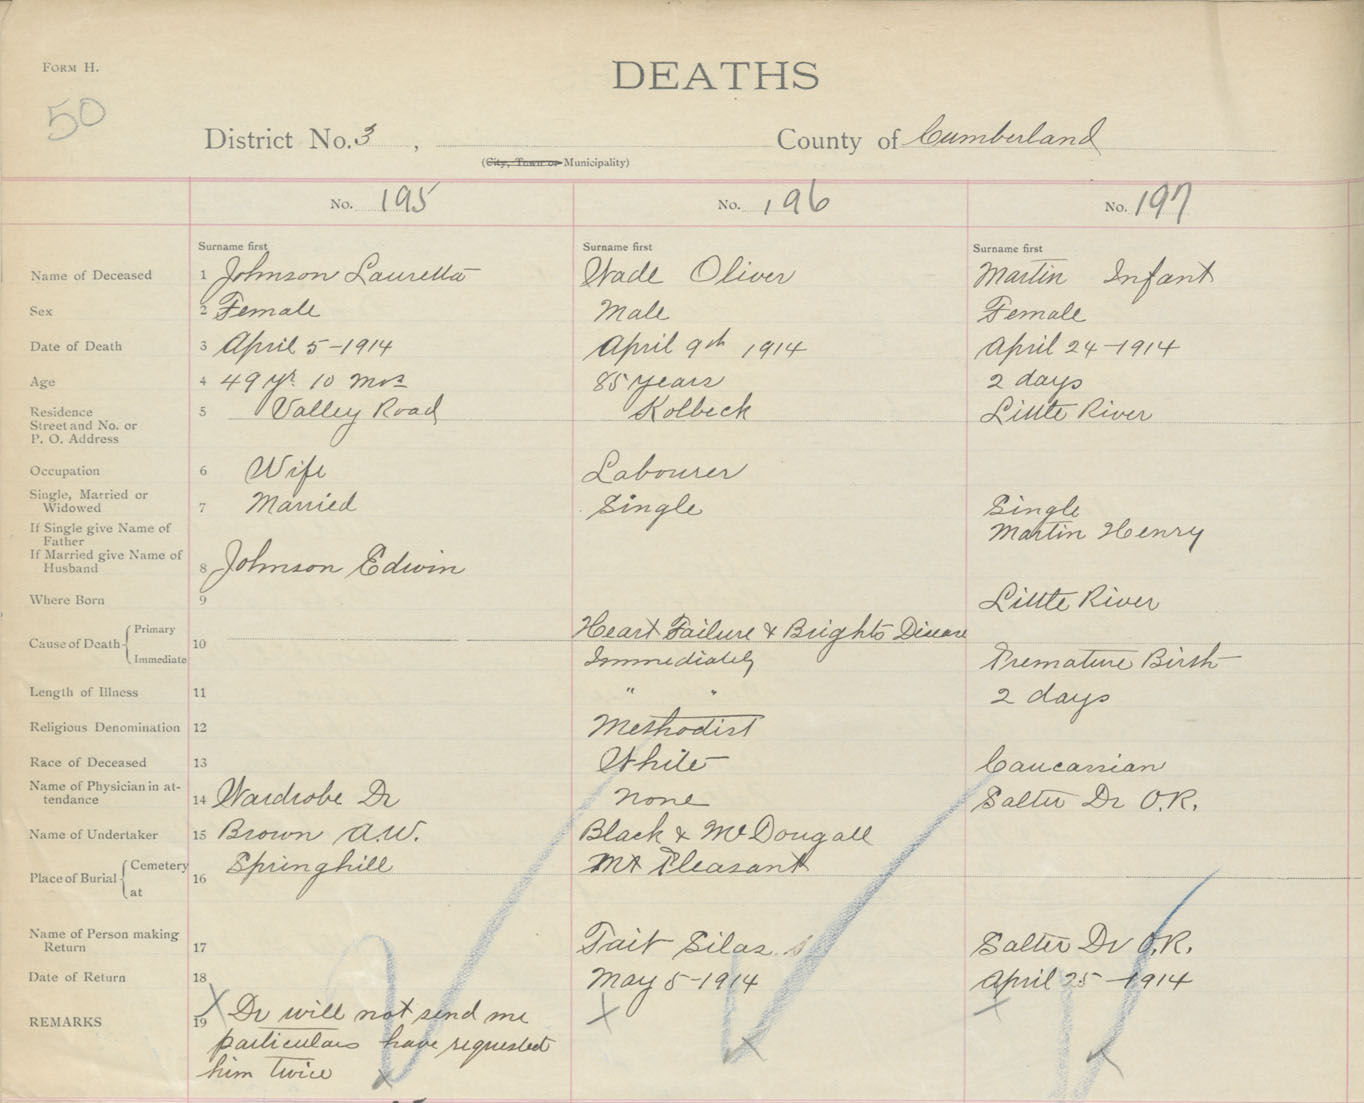 FORM H.
DEATHS
50
District No. 3 , County of Cumberland
(City, Town or Municipality)
No. 195 No. 196 No. 197
Surname first Surname first Surname first
Name of Deceased 1 Johnson Lauretta Wade Oliver Martin Infant
Sex 2 Female Male Female
Date of Death 3 April 5-1914 April 9th 1914 April 24-1914
Age 4 49 yr 10 mos 85 years 2 days
Residence 5 Valley Road Kolbeck Little River
Street and No. or
P. O. Address
Occupation 6 Wife Labourer
Single, Married or
Widowed 7 Married Single Single
If Single give Name of
Father Martin Henry
If Married give Name of
Husband 8 Johnson Edwin
Where Born 9 Little River
Cause of Death Primary 10 Heart Failure & Brights Disease
Immediate Immediately Premature Birth
Length of Illness 11 " " 2 days
Religious Denomination 12 Methodist
Race of Deceased 13 White Caucassian
Name of Physician in at-
tendance 14 Wardrobe Dr none Salter Dr O.R.
Name of Undertaker 15 Brown A.W. Black & McDougall
Place of Burial Cemetery 16 Springhill Mt Pleasant
at
Name of Person making
Return 17 Tait Silas s Salter Dr O.R.
Date of Return 18 May 5-1914 April 25-1914
REMARKS 19 X Dr will not send me X X
particulars have requested
him twice X X X